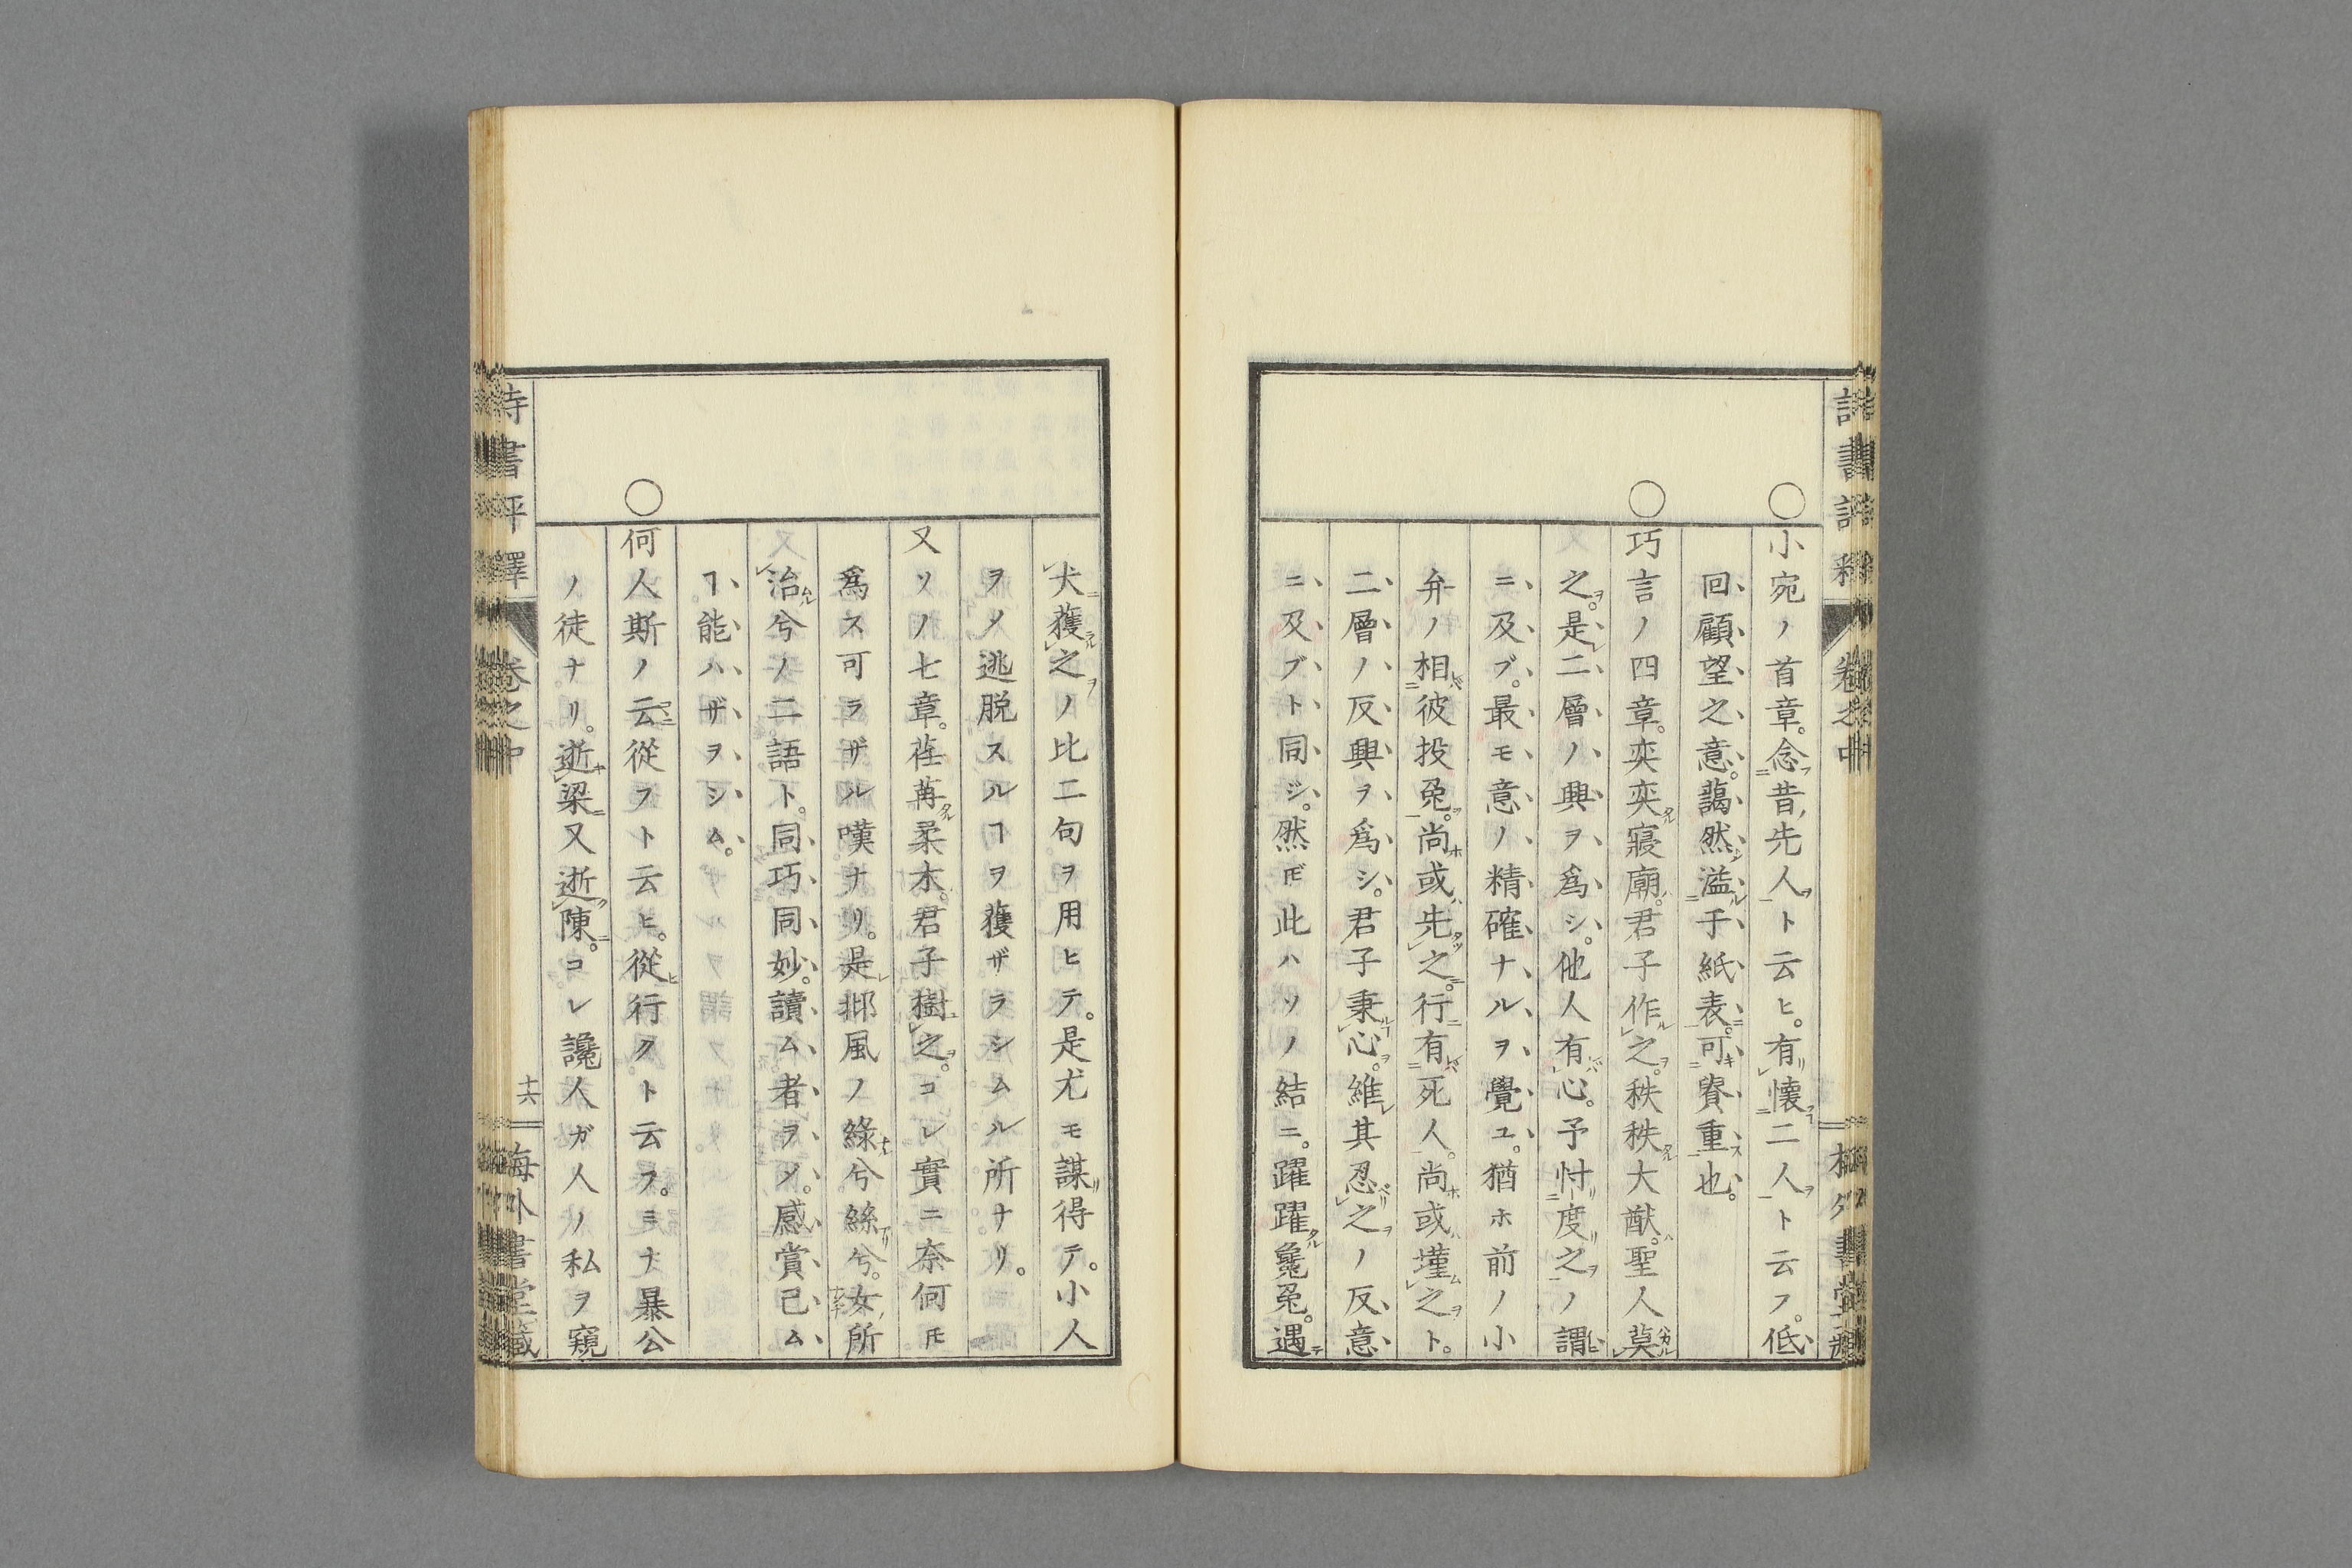 小宛ノ首章。念昔先人ト云ヒ。有懷二人ト云フ。低
回顧望之意。藹然溢于紙表。可貴重也。
巧言ノ四章。奕奕寢廟。君子作之。秩秩大猷。聖人莫
之。是二層ノ興ヲ爲シ。他人有心。予忖度之ノ謂
ニ及ブ。最モ意ノ精確ナルヲ覺ユ。猶ホ前ノ小
弁ノ相彼投兔。尚或先之。行有死人。尚或墐之ト。
二層ノ反興ヲ爲シ。君子秉心。維其忍之ノ反意
ニ及ブト同ジ。然𪜈此ハソノ結ニ。躍躍毚兔。遇
犬獲之ノ比二句ヲ用ヒテ。是尤モ謀得テ。小人
ヲメ逃脱スルヿヲ獲ザラシムル所ナリ。
又ソノ七章。荏苒柔木。君子樹之。コレ實ニ奈何𪜈
爲ス可ラザル嘆ナリ。是邶風ノ綠兮絲兮。女所
治兮ノ二語ト。同巧同妙。讀ム者ヲメ。感賞已ム
ヿ能ハザヲシム。
何人斯ノ云從フト云ヒ。從行クト云フ。ミナ暴公
ノ徒ナリ。逝梁又逝陳。コレ讒人ガ人ノ私ヲ窺
詩書評釋
卷之中
十六
海外書堂藏